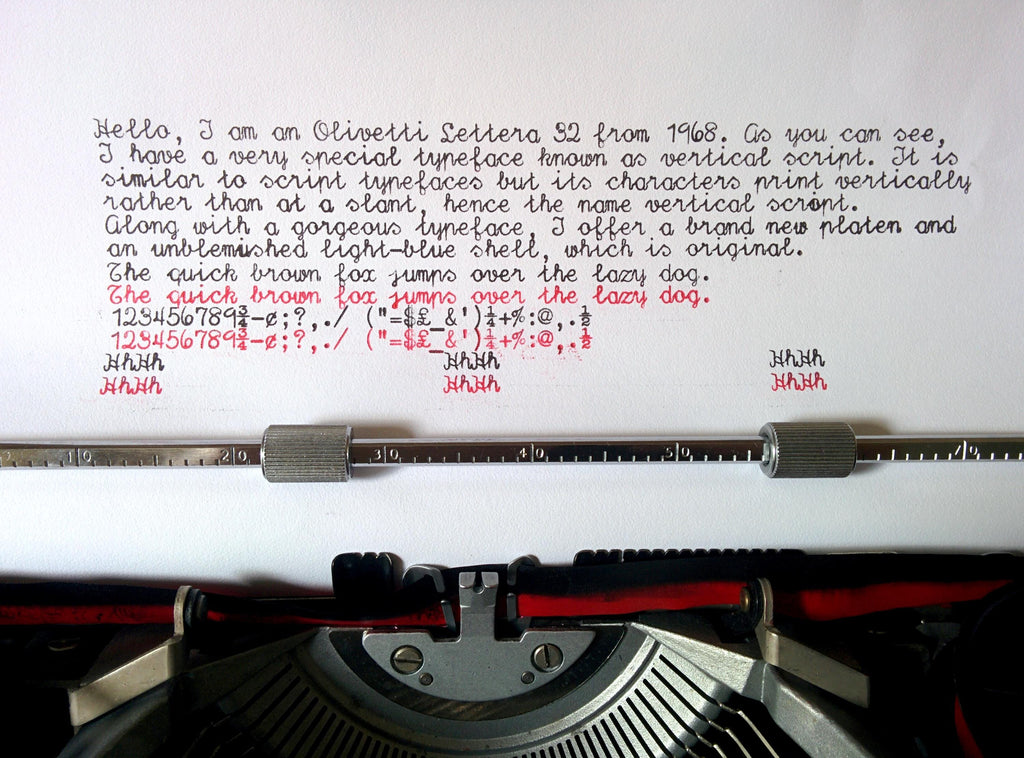 Hello, I am an Olivetti Lettera 32 from 1968. As you can see,
I have a very special typeface known as vertical script. It is
similar to script typefaces but its characters print vertically
rather than at a slant, hence the name vertical script.
Along with a gorgeous typeface, I offer a brand new platen and
an unblemished light-blue shell, which is original.
The quick brown fox jumps over the lazy dog.
The quick brown fox jumps over the lazy dog.
123456789¾-¢;?,./ ("=$£_&')¼+%:@,.½
123456789¾-¢;?,./ ("=$£_&')¼+%:@,.½
HhHh HhHh HhHh
HhHh HhHh HhHh
10 20 30 40 50 70